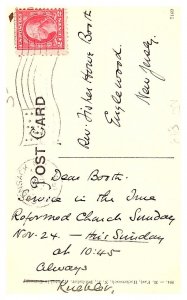 Rev. Fisher Howe Booth
Englewood
New Jersey
POST CARD
Dear Booth.
Service in the True
Reformed Church Sunday
Nov. 24 — this Sunday
at 10:45
Always